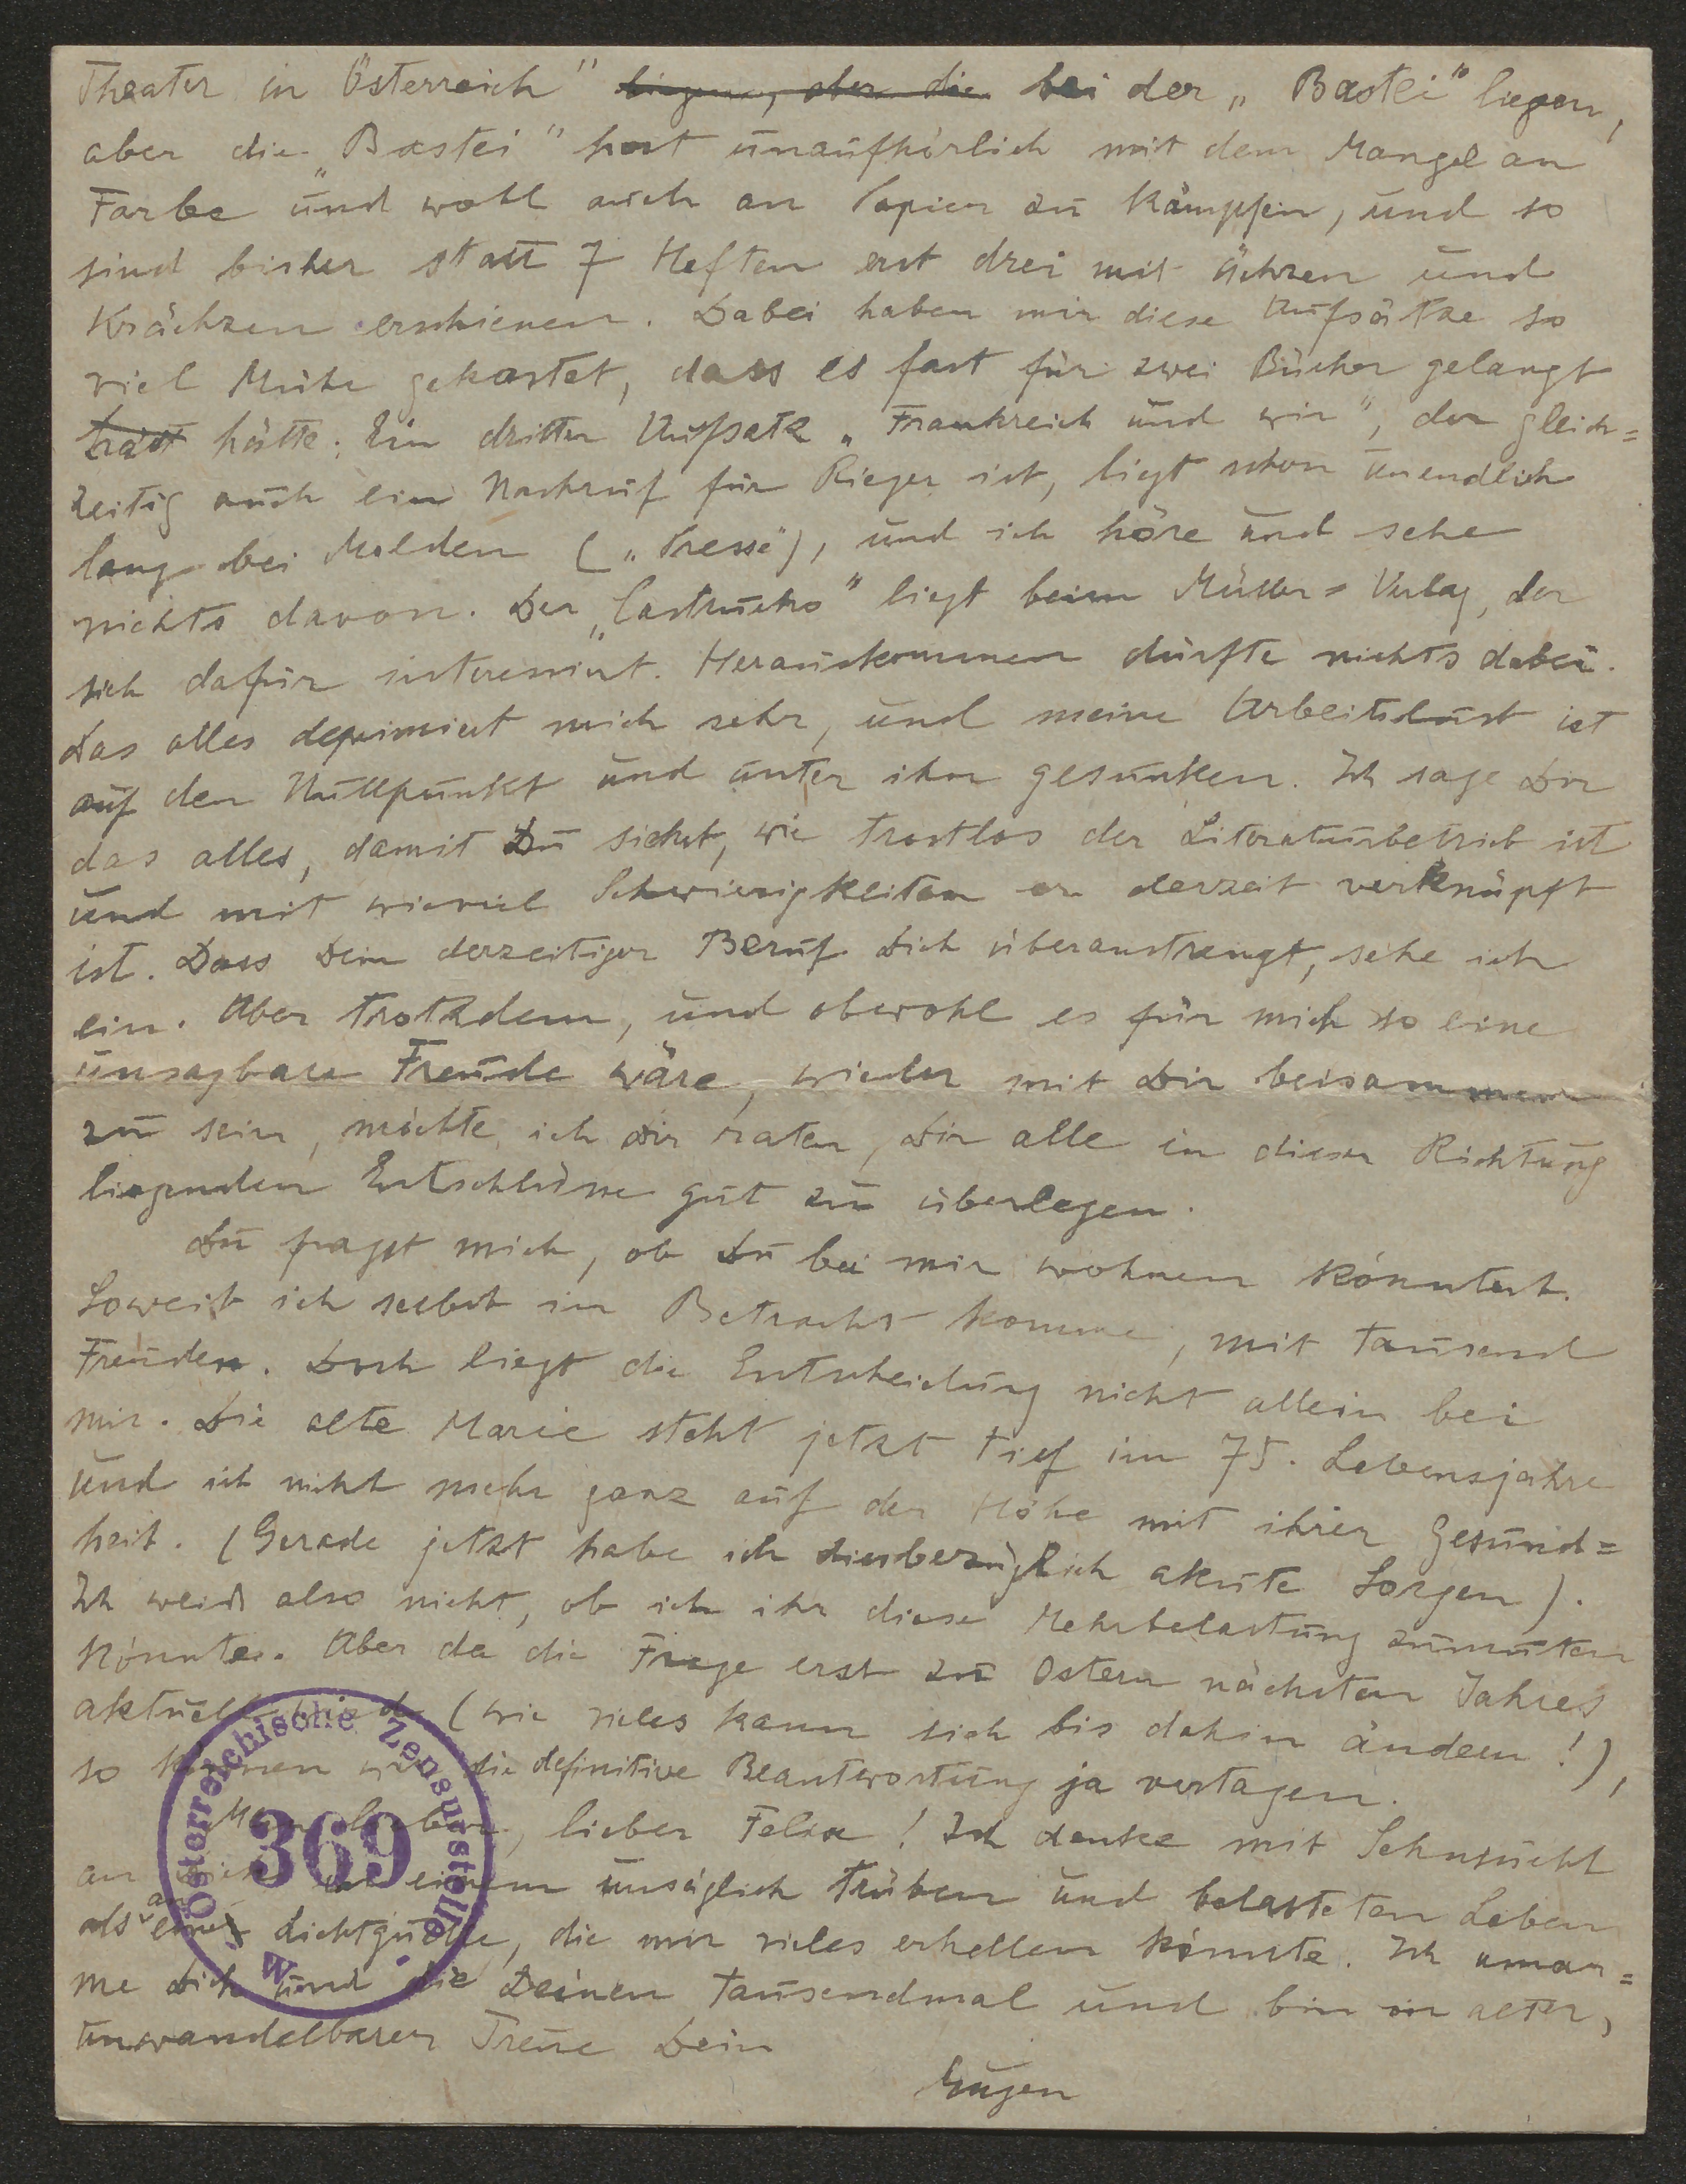 Theater in Österreich" liegen, aber die bei der „Bastei" liegen,
aber die „Bastei" hat unaufhörlich mit dem Mangel an
Farbe und wohl auch an Papier zu kämpfen, und so
sind bisher statt 7 Heften erst drei mit Ächzen und
Krächzen erschienen. Dabei haben mir diese Aufsätze so
viel Mühe gekostet, dass es fast für zwei Bücher gelangt
hätt hätte. Ein dritter Aufsatz „Frankreich und wir", der gleich=
zeitig auch ein Nachruf für Rieger ist, liegt schon unendlich
lang bei Molden („Presse"), und ich höre und sehe
nichts davon. Der „Castruccio" liegt beim Müller=Verlag, der
sich dafür interessiert. Herauskommen dürfte nichts dabei.
Das alles deprimiert mich sehr, und meine Arbeitslust ist
auf den Nullpunkt und unter ihn gesunken. Ich sage Dir
das alles, damit Du siehst, wie trostlos der Literaturbetrieb ist
und mit wieviel Schwierigkeiten er derzeit verknüpft
ist. Dass Dein derzeitiger Beruf Dich überanstrengt, sehe ich
ein. Aber trotzdem, und obwohl es für mich so eine
unsagbare Freude wäre, wieder mit Dir beisammen
zu sein, möchte ich Dir raten, Dir alle in dieser Richtung
liegenden Entschlüsse gut zu überlegen.
Du fragst mich, ob Du bei mir wohnen könntest.
Soweit ich selbst in Betracht komme, mit tausend
Freuden. Doch liegt die Entscheidung nicht allein bei
mir. Die alte Marie steht jetzt tief im 75. Lebensjahre
und ist nicht mehr ganz auf der Höhe mit ihrer Gesund=
heit. (Gerade jetzt habe ich diesbezüglich akute Sorgen).
Ich weiß also nicht, ob ich ihr diese Mehrbelastung zumuten
könnte. Aber da die Frage erst zu Ostern nächsten Jahres
aktuell wird (wie vieles kann sich bis dahin ändern!),
so können wir die definitive Beantwortung ja vertagen.
Mein lieber, lieber Felix! Ich denke mit Sehnsucht
an Dich in einem unsäglich trüben und belasteten Leben
als an eine Lichtquelle, die mir vieles erhellen könnte. Ich umar=
me Dich und die Deinen tausendmal und bin in alter,
unwandelbarer Treue Dein
Eugen
Österreichische Zensurstelle
369
W